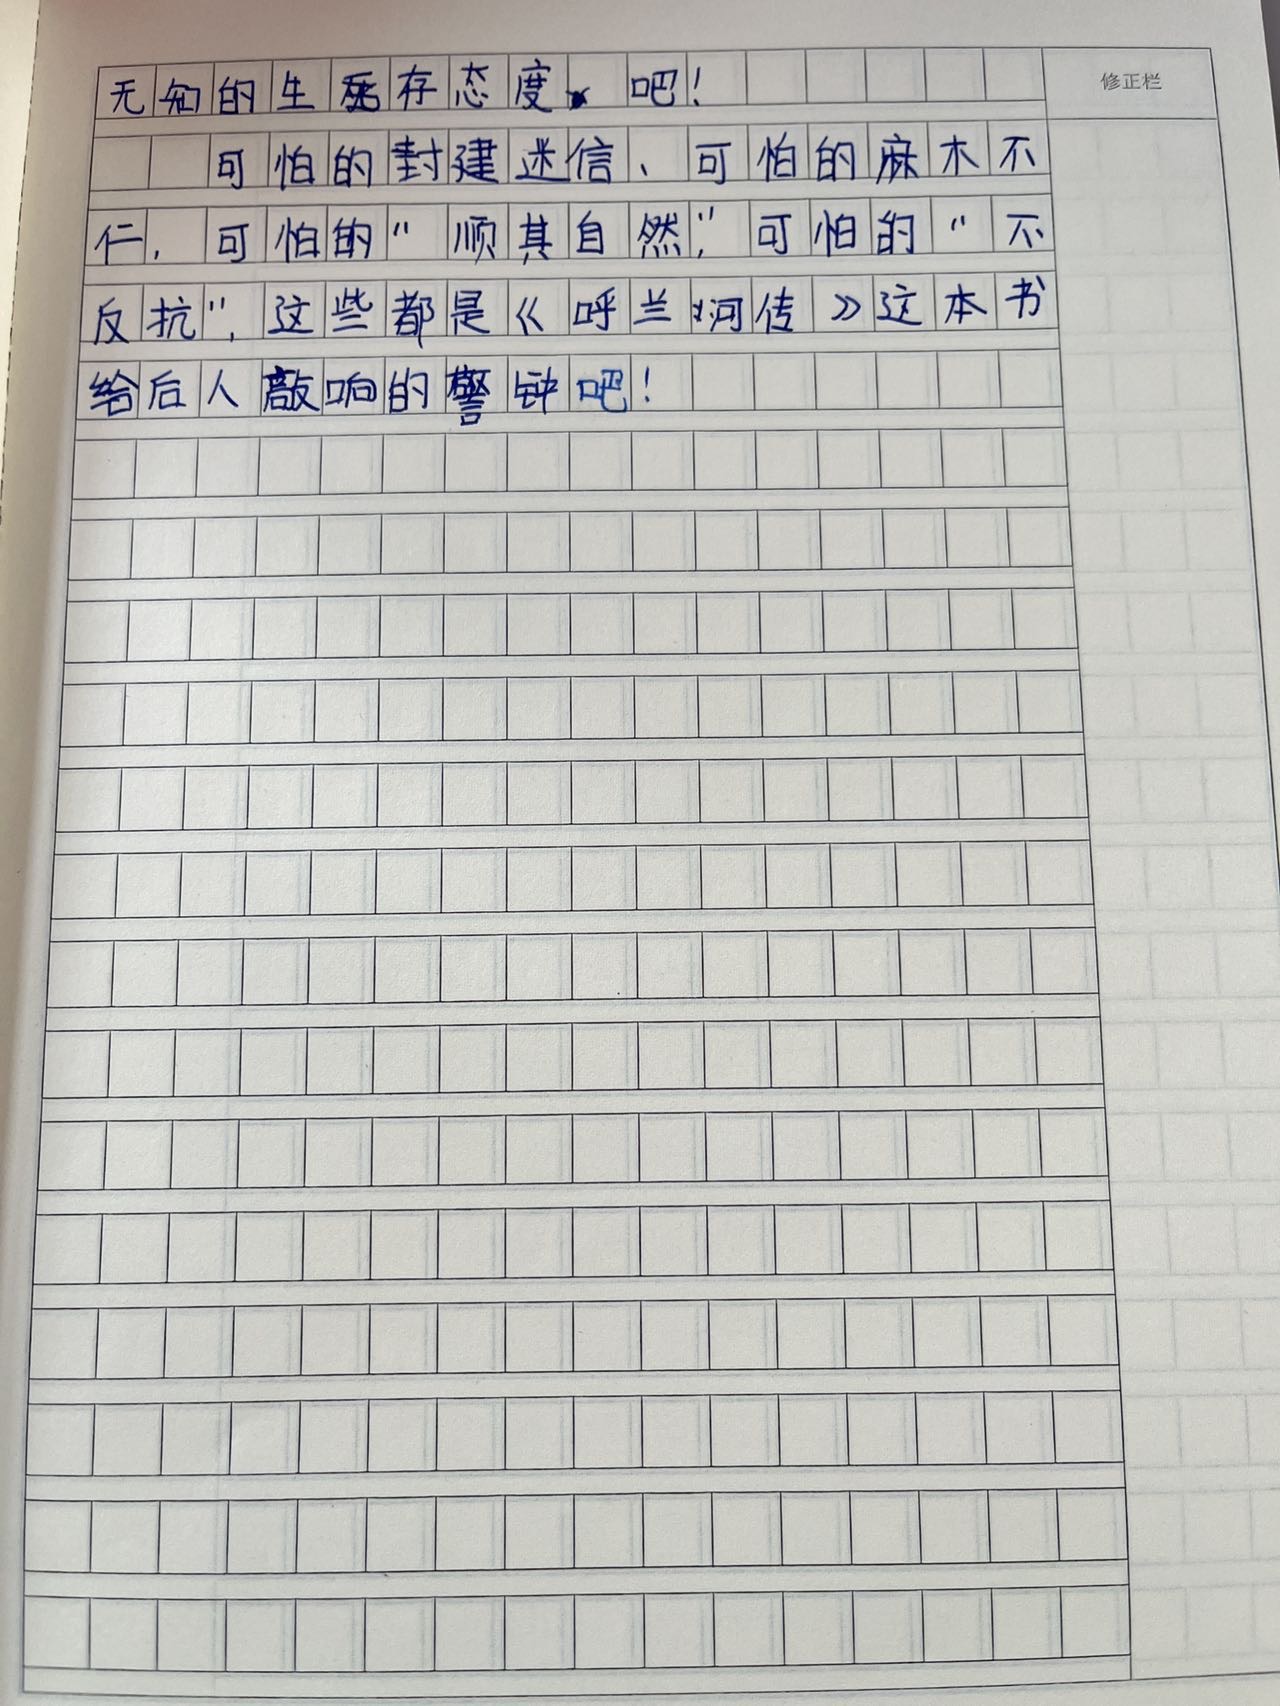 无知的生死存态度、吧！
修正栏
可怕的封建迷信、可怕的麻木不
仁，可怕的“顺其自然”，可怕的“不
反抗”，这些都是《呼兰河传》这本书
给后人敲响的警钟吧！